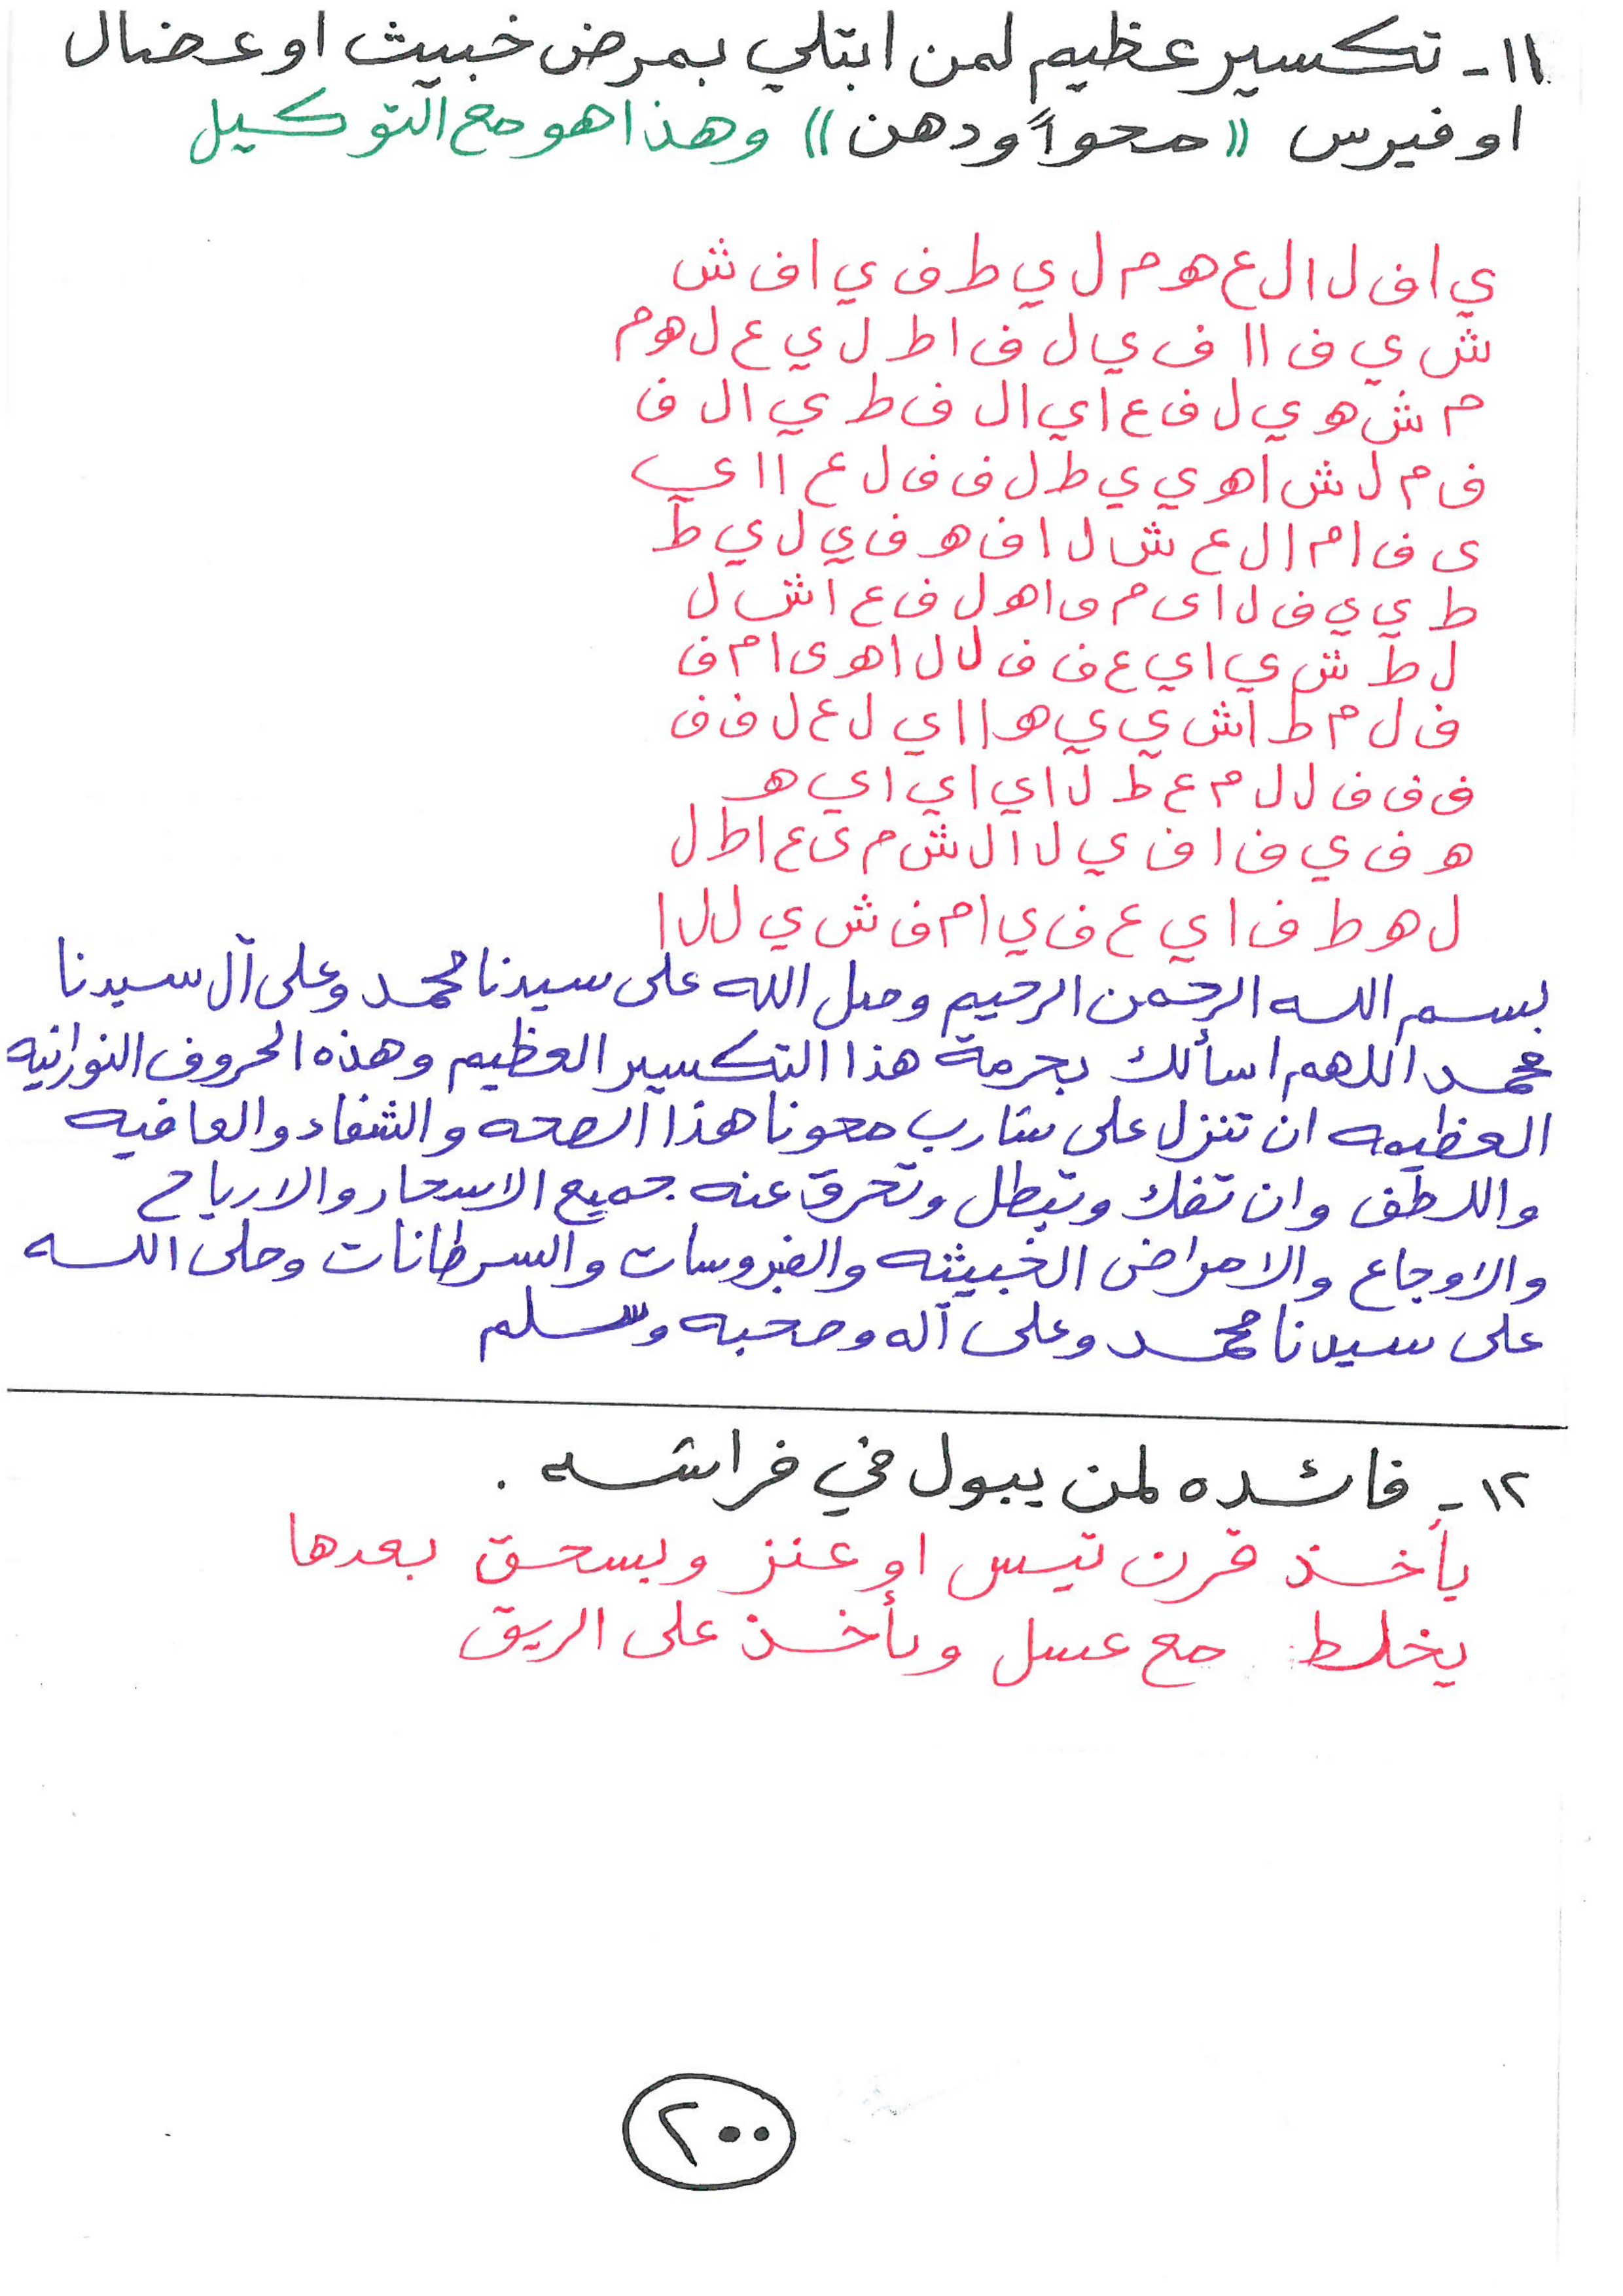 ١١ - تكسير عظيم لمن ابتلي بمرض خبيث او عضال
او فيرس (( محواً ودهن )) وهذا هو مع التوكيل
ي ا ف ل ا ل ع ه و م ل ي ط ف ي ا ف ش
ش ي ف ا ا ف ي ل ف ا ط ل ي ع ل ه و م
م ش ه و ي ل ف ع ا ي ا ل ف ط ي ا ل ف
ف م ل ش ا ه و ي ي ط ل ف ف ل ع ا ا ي
ى ف ا م ا ل ع ش ل ا ف ه و ف ي ل ي ط
ط ي ي ف ل ا ى م و ا ه ل ف ع ا ش ل
ل ط ش ي ا ي ع ف ف ل ل ا ه و ى ا م ف
ف ل م ط ا ش ي ي ه و ا ا ي ل ع ل ف ف
ف ف ف ل ل م ع ط ل ا ي ا ي ا ي ه
ه و ف ي ف ا ف ي ل ا ل ش م ى ع ا ط ل
ل ه و ط ف ا ي ع ف ي ا م ف ش ي ل ل ا
بسم الله الرحمن الرحيم وصل الله على سيدنا محمد وعلى آل سيدنا
محمد اللهم اسألك بحرمة هذا التكسير العظيم وهذه الحروف النورانيه
العظيمه ان تنزل على شارب محونا هذا الصحه والشفاء والعافيه
واللطف وان تفك وتبطل وتحرق عنه جميع الاسحار والارياح
والاوجاع والامراض الخبيثه والفيروسات والسرطانات وصلى الله
على سيدنا محمد وعلى آله وصحبه وسلم
١٢ - فائده لمن يبول في فراشه .
يأخذ قرن تيس او عنز ويسحق بعدها
يخلط مع عسل ويأخذ على الريق
٢٠٠